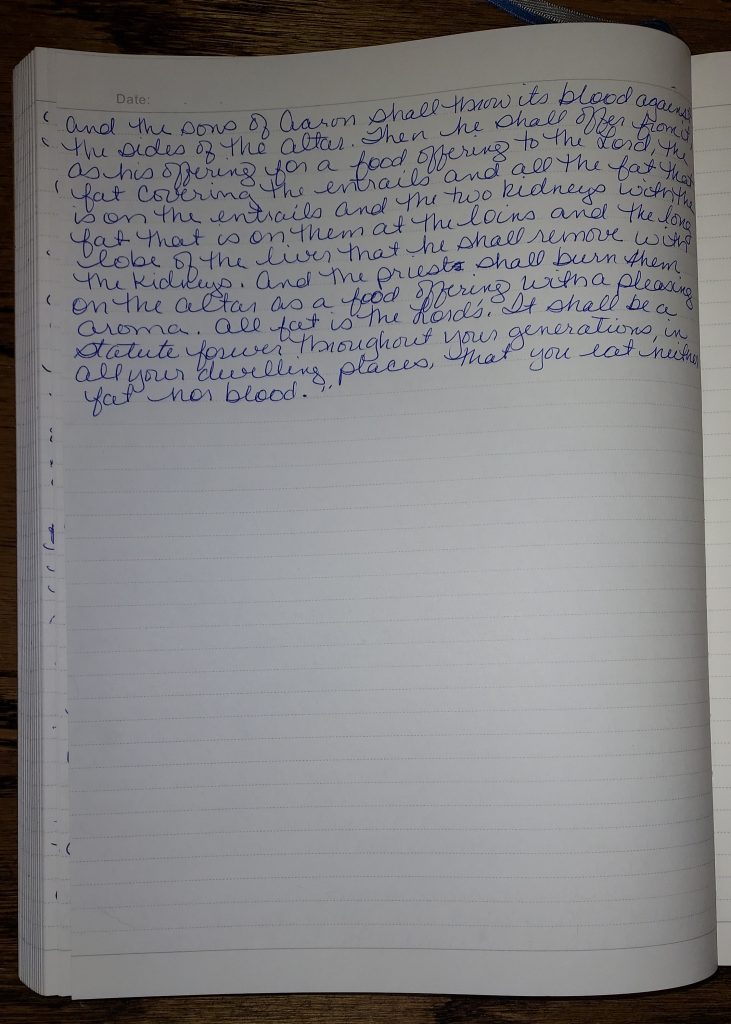 Date:
and the sons of Aaron shall throw its blood against
the sides of the altar. Then he shall offer from it
as his offering for a food offering to the Lord, the
fat covering the entrails and all the fat that
is on the entrails and the two kidneys with the
fat that is on them at the loins and the long
lobe of the liver that he shall remove with
the kidneys. And the priests shall burn them
on the altar as a food offering with a pleasing
aroma. All fat is the Lord's. It shall be a
statute forever throughout your generations, in
all your dwelling places, that you eat neither
fat nor blood.